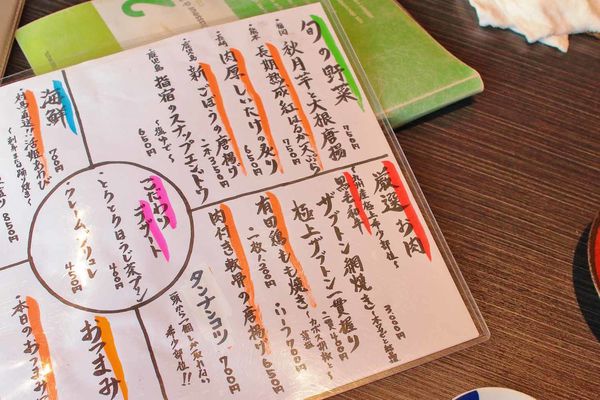 旬の野菜
・福岡 秋月芋と大根唐揚 750円
・熊本 長期熟成紅はるか天ぷら 750円
・長崎 肉厚しいたけの炙り 650円
・鹿児島 新ごぼうの唐揚げ 一本350円
・鹿児島 指宿のスナップエンドウ 650円
〜塩ゆで〜
海鮮
・対馬直送!!活〆あわび
700円
850円
こだわりデザート
・とろとろほうじ茶プリン 400円
・クレームブリュレ 450円
厳選お肉
黒毛和牛
〜九州産極上赤身部位〜
ザブトン網焼き
3000円
極上ザブトン一貫握り
有田鶏もも焼き
ハーフ 650円
一枚 1200円
肉付き軟骨の唐揚げ 700円
タンナンコツ 700円
頭から一個しか取れない
希少部位!!
おつまみ
・本日のおつまみ